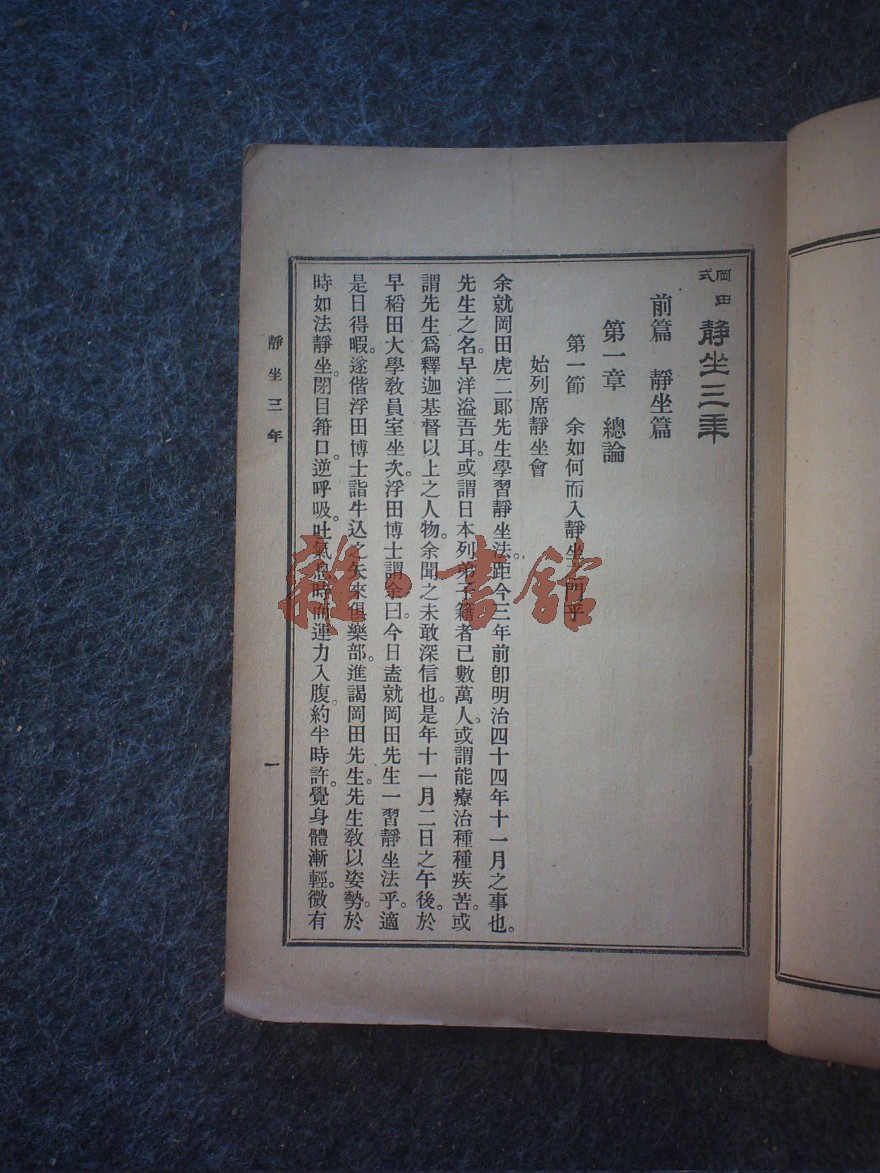 岡田式 靜坐三年
前篇　靜坐篇
第一章　總論
第一節　余如何而入靜坐之門乎
始列席靜坐會
余就岡田虎二郞先生學習靜坐法。距今三年前卽明治四十四年十一月之事也。
先生之名。早洋溢吾耳。或謂日本列弟子籍者已數萬人。或謂能療治種種疾苦。或
謂先生爲釋迦基督以上之人物。余聞之未敢深信也。是年十一月二日之午後。於
早稻田大學敎員室坐次。浮田博士謂余曰。今日盍就岡田先生一習靜坐法乎。適
是日得暇。遂偕浮田博士詣牛込之矢來俱樂部。進謁岡田先生。先生敎以姿勢。於
時如法靜坐。閉目箝口。逆呼吸。吐氣息時而運力入腹。約半時許。覺身體漸輕。微有
靜坐三年
一
雜·書館